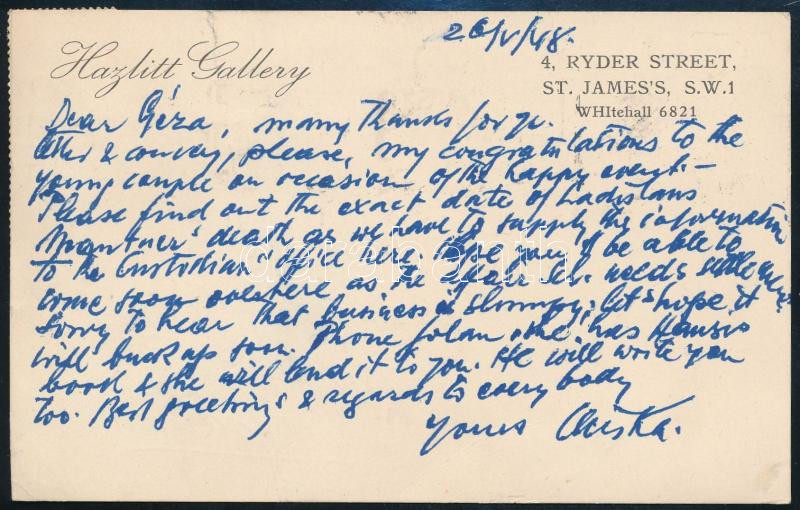 26/V/48.
Hazlitt Gallery
4, RYDER STREET,
ST. JAMES'S, S.W.1
WHItehall 6821
Dear Géza, many thanks for yr.
letter & convey, please, my congratulations to the
young couple on occasion of the happy event.–
Please find out the exact date of Ladislaus
death as we have to supply the information
to the Custodian's office here. Hope you'll be able to
come soon over here as the needs settlement.
Sorry to hear that business is slumpy; let's hope it
will buck up soon. Phone she has
book & she will send it to you. He will write you
too. Best greetings & regards to everybody
Yours
darabanth